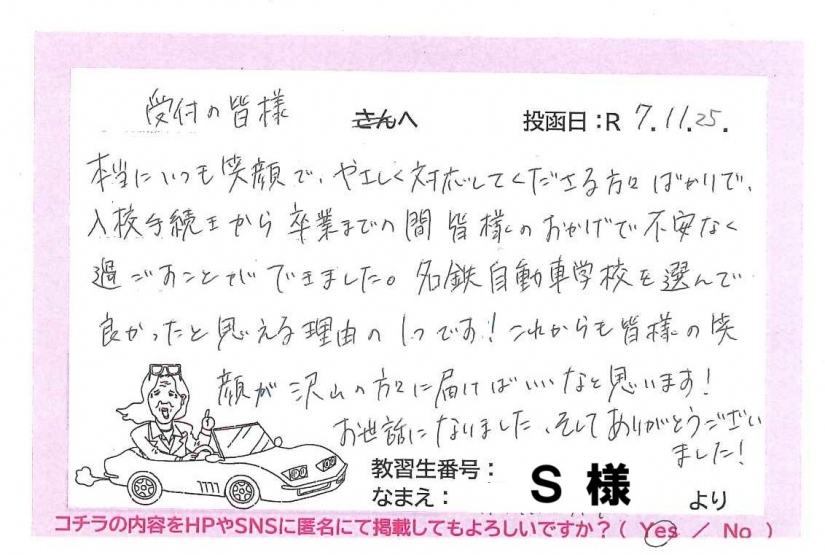 受付の皆様 さんへ 投函日：R 7.11.25.
本当にいつも笑顔で、やさしく対応してくださる方々ばかりで、
入校手続きから卒業までの間皆様のおかげで不安なく
過ごすことができました。名鉄自動車学校を選んで
良かったと思える理由の1つです！これからも皆様の笑
顔が沢山の方々に届けばいいなと思います！
お世話になりました、そしてありがとうござい
ました！
教習生番号：
なまえ： S 様 より
コチラの内容をHPやSNSに匿名にて掲載してもよろしいですか？（ Yes ／ No ）